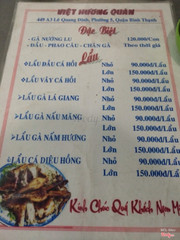 VIỆT HƯƠNG QUÁN
Đặc Biệt
- GÀ NƯỚNG LU 120.000/Con
- ĐẦU - PHAO CÂU - CHÂN GÀ Theo thời giá
Lẩu
• LẨU ĐẦU CÁ HỒI Nhỏ 90.000đ/Lẩu
Lớn 150.000đ/Lẩu
• LẨU VÂY CÁ HỒI Nhỏ 90.000đ/Lẩu
Lớn 150.000đ/Lẩu
• LẨU GÀ LÁ GIANG Nhỏ 90.000đ/Lẩu
Lớn 150.000đ/Lẩu
• LẨU GÀ NẤU MĂNG Nhỏ 90.000đ/Lẩu
Lớn 150.000đ/Lẩu
• LẨU GÀ NẤM HƯƠNG Nhỏ 90.000đ/Lẩu
Lớn 150.000đ/Lẩu
• LẨU CÁ DIÊU HỒNG Nhỏ 90.000đ/Lẩu
Lớn 150.000đ/Lẩu
Kính Chúc Quý Khách